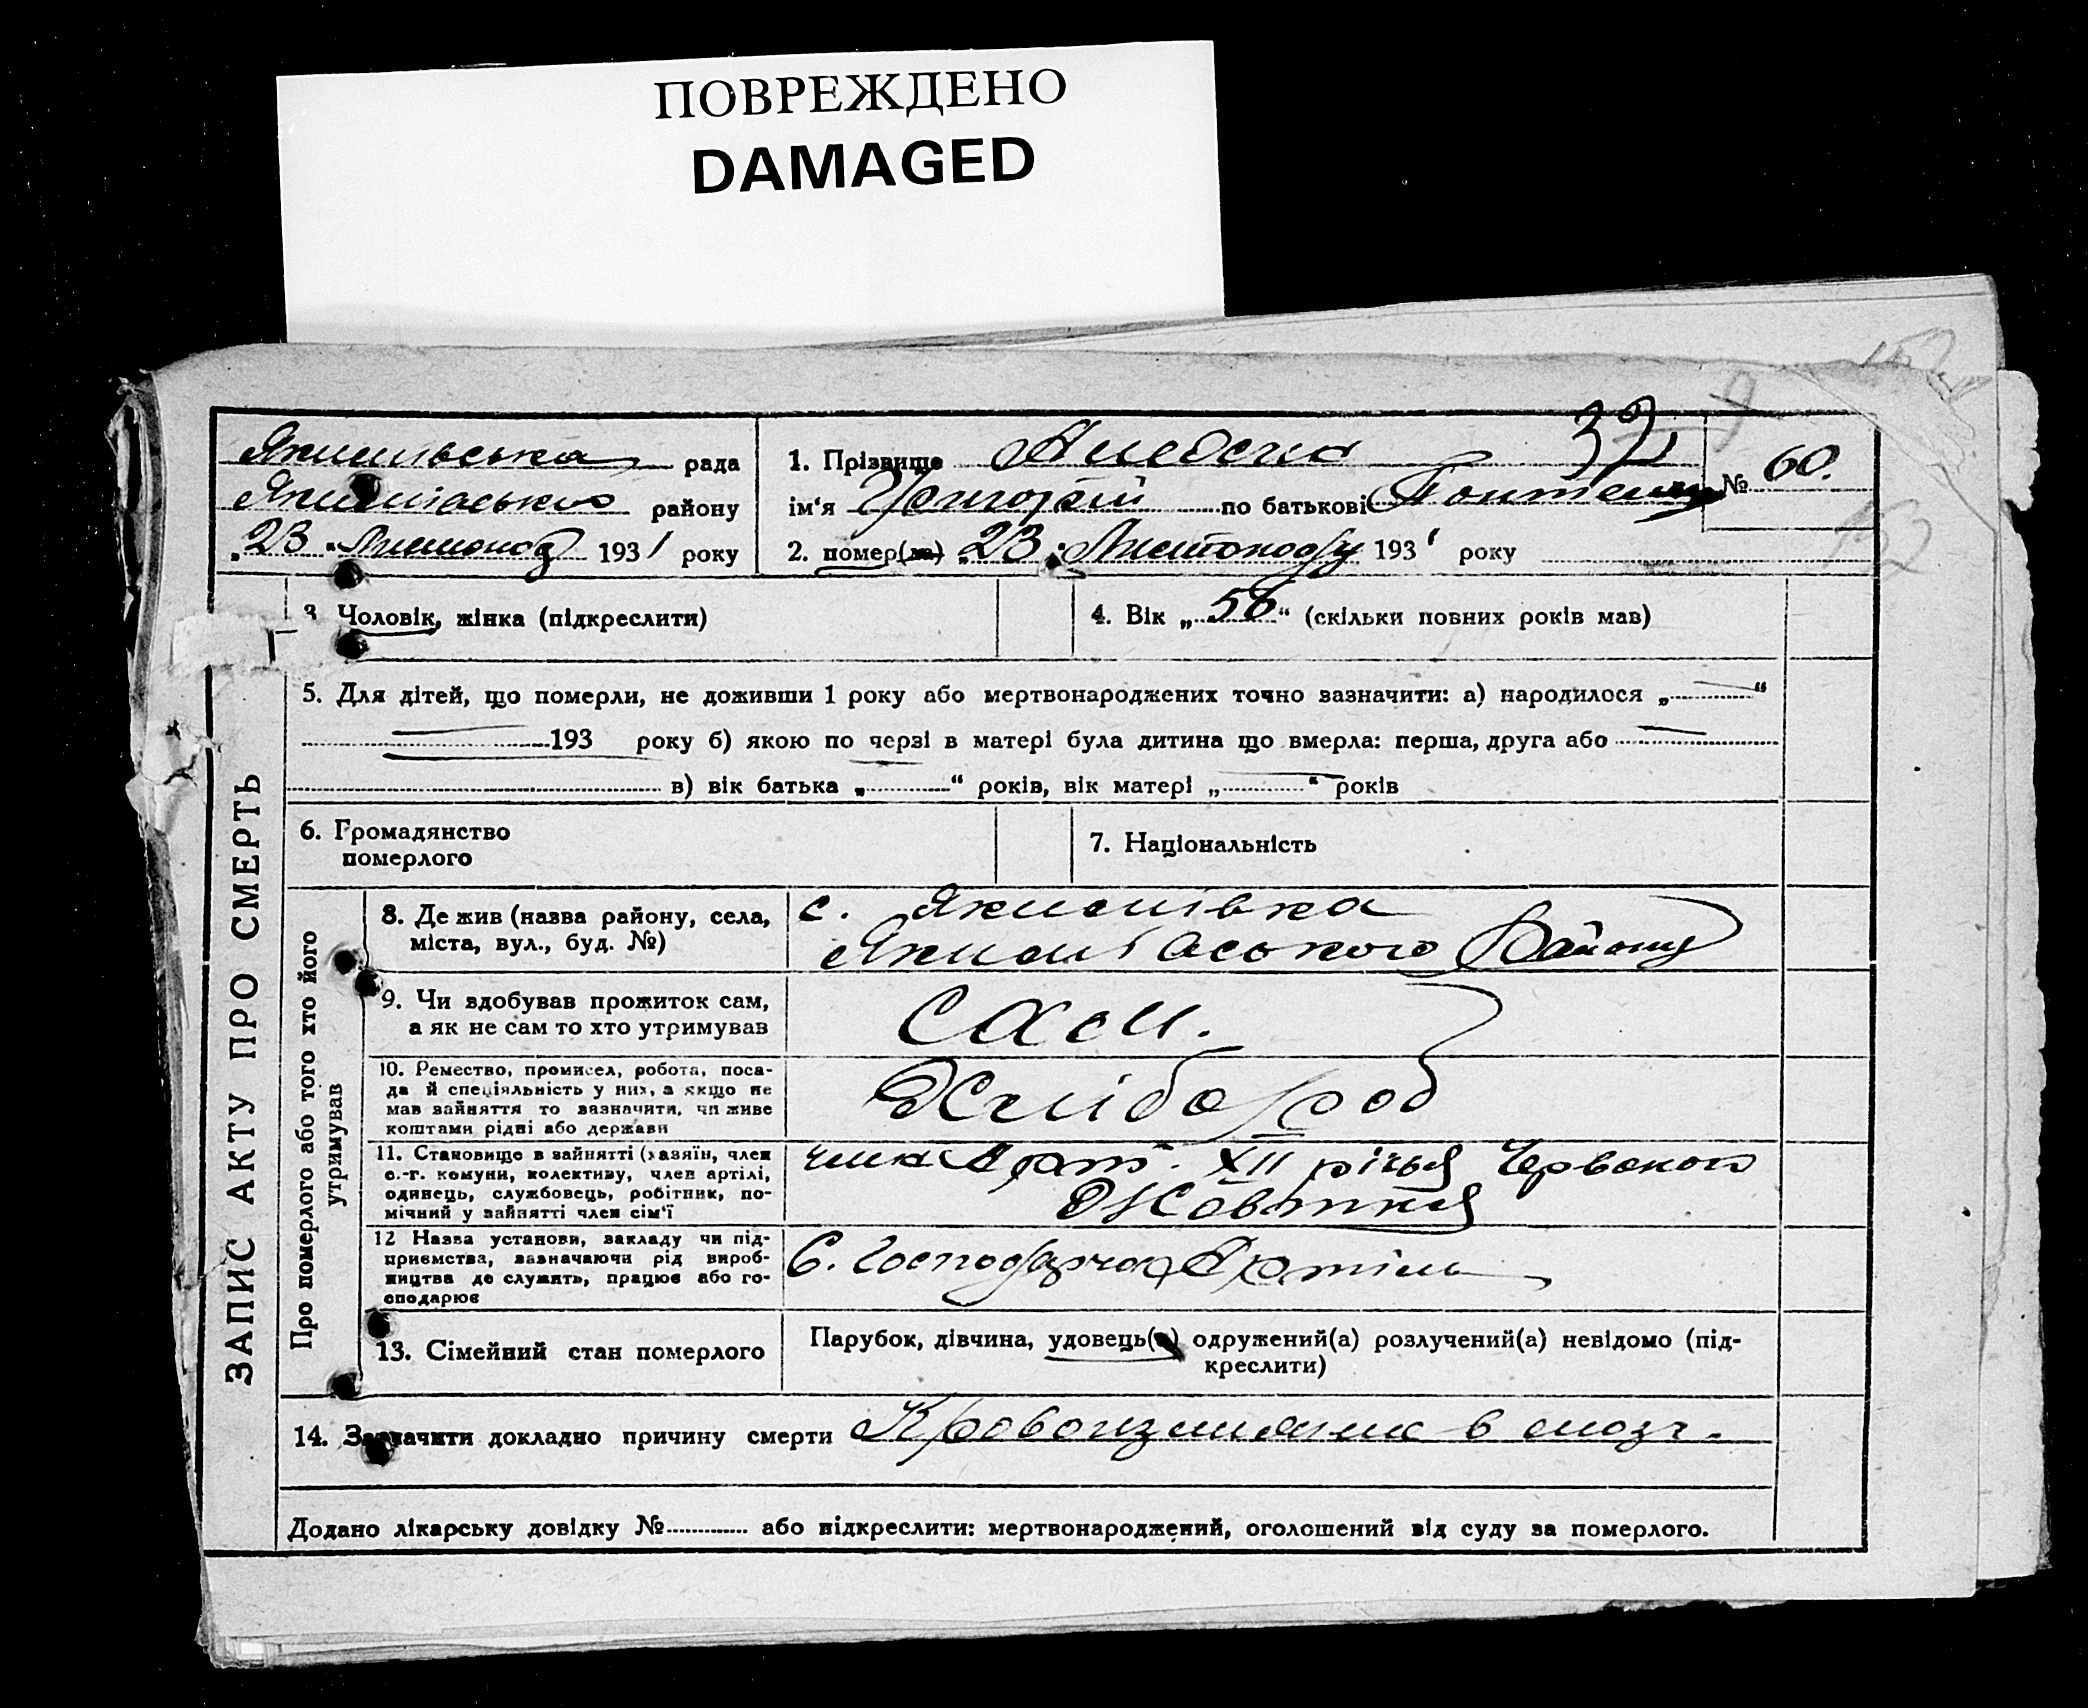 ПОВРЕЖДЕНО
DAMAGED
Якимівська рада
Якимівського району
„23“ Листопад 1931 року
1. Прізвище 32
ім'я Григорій по батькові
№ 60.
2. помер(ла) „23“ Листопаду 1931 року
152
3. Чоловік, жінка (підкреслити)
4. Вік „56“ (скільки повних років мав)
5. Для дітей, що померли, не доживши 1 року або мертвонароджених точно зазначити: а) народилося „ “
193 року б) якою по черзі в матері була дитина що вмерла: перша, друга або
в) вік батька „ “ років, вік матері „ “ років
6. Громадянство
померлого
7. Національність
ЗАПИС АКТУ ПРО СМЕРТЬ
Про померлого або того хто його
утримував
8. Де жив (назва району, села,
міста, вул., буд. №)
с. Якимівка
Якимівського Району
9. Чи вдобував прожиток сам,
а як не сам то хто утримував
Сам.
10. Ремество, промисел, робота, поса-
да й спеціяльність у них, а якщо не
мав зайняття то зазначити, чи живе
коштами рідні або держави
Хлібороб
11. Становище в зайнятті (хазяїн, член
с.-г. комуни, колективу, член артілі,
одинець, службовець, робітник, по-
мічний у зайнятті член сім'ї
член Арт. XII річья Червоного
Жовтня
12 Назва установи, закладу чи під-
приємства, зазначаючи рід вироб-
ництва де служить, працює або го-
сподарює
С. Господарча Артіль
13. Сімейний стан померлого
Парубок, дівчина, удовець( ) одружений(а) розлучений(а) невідомо (під-
креслити)
14. Зазначити докладно причину смерти Кровоизлияние в мозг.
Додано лікарську довідку № або підкреслити: мертвонароджений, оголошений від суду за померлого.